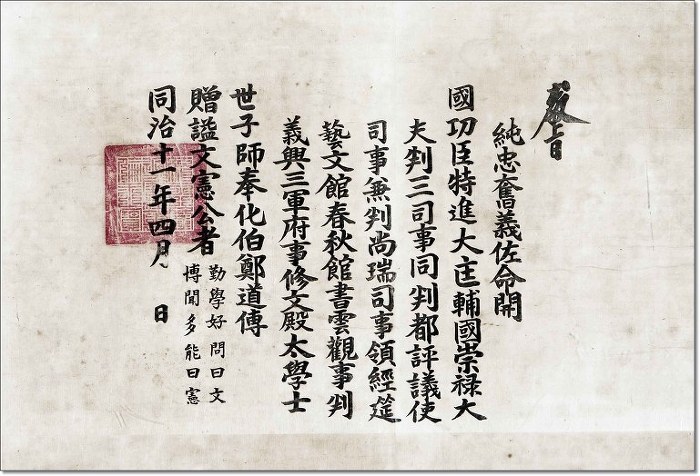 敎旨
純忠奮義佐命開
國功臣特進大匡輔國崇禄大
夫判三司事同判都評議使
司事兼判尚瑞司事領經筵
藝文館春秋館書雲觀事判
義興三軍府事修文殿太學士
世子師奉化伯鄭道傳
贈謚文憲公者
勤學好問曰文
博聞多能曰憲
同治十一年四月 日